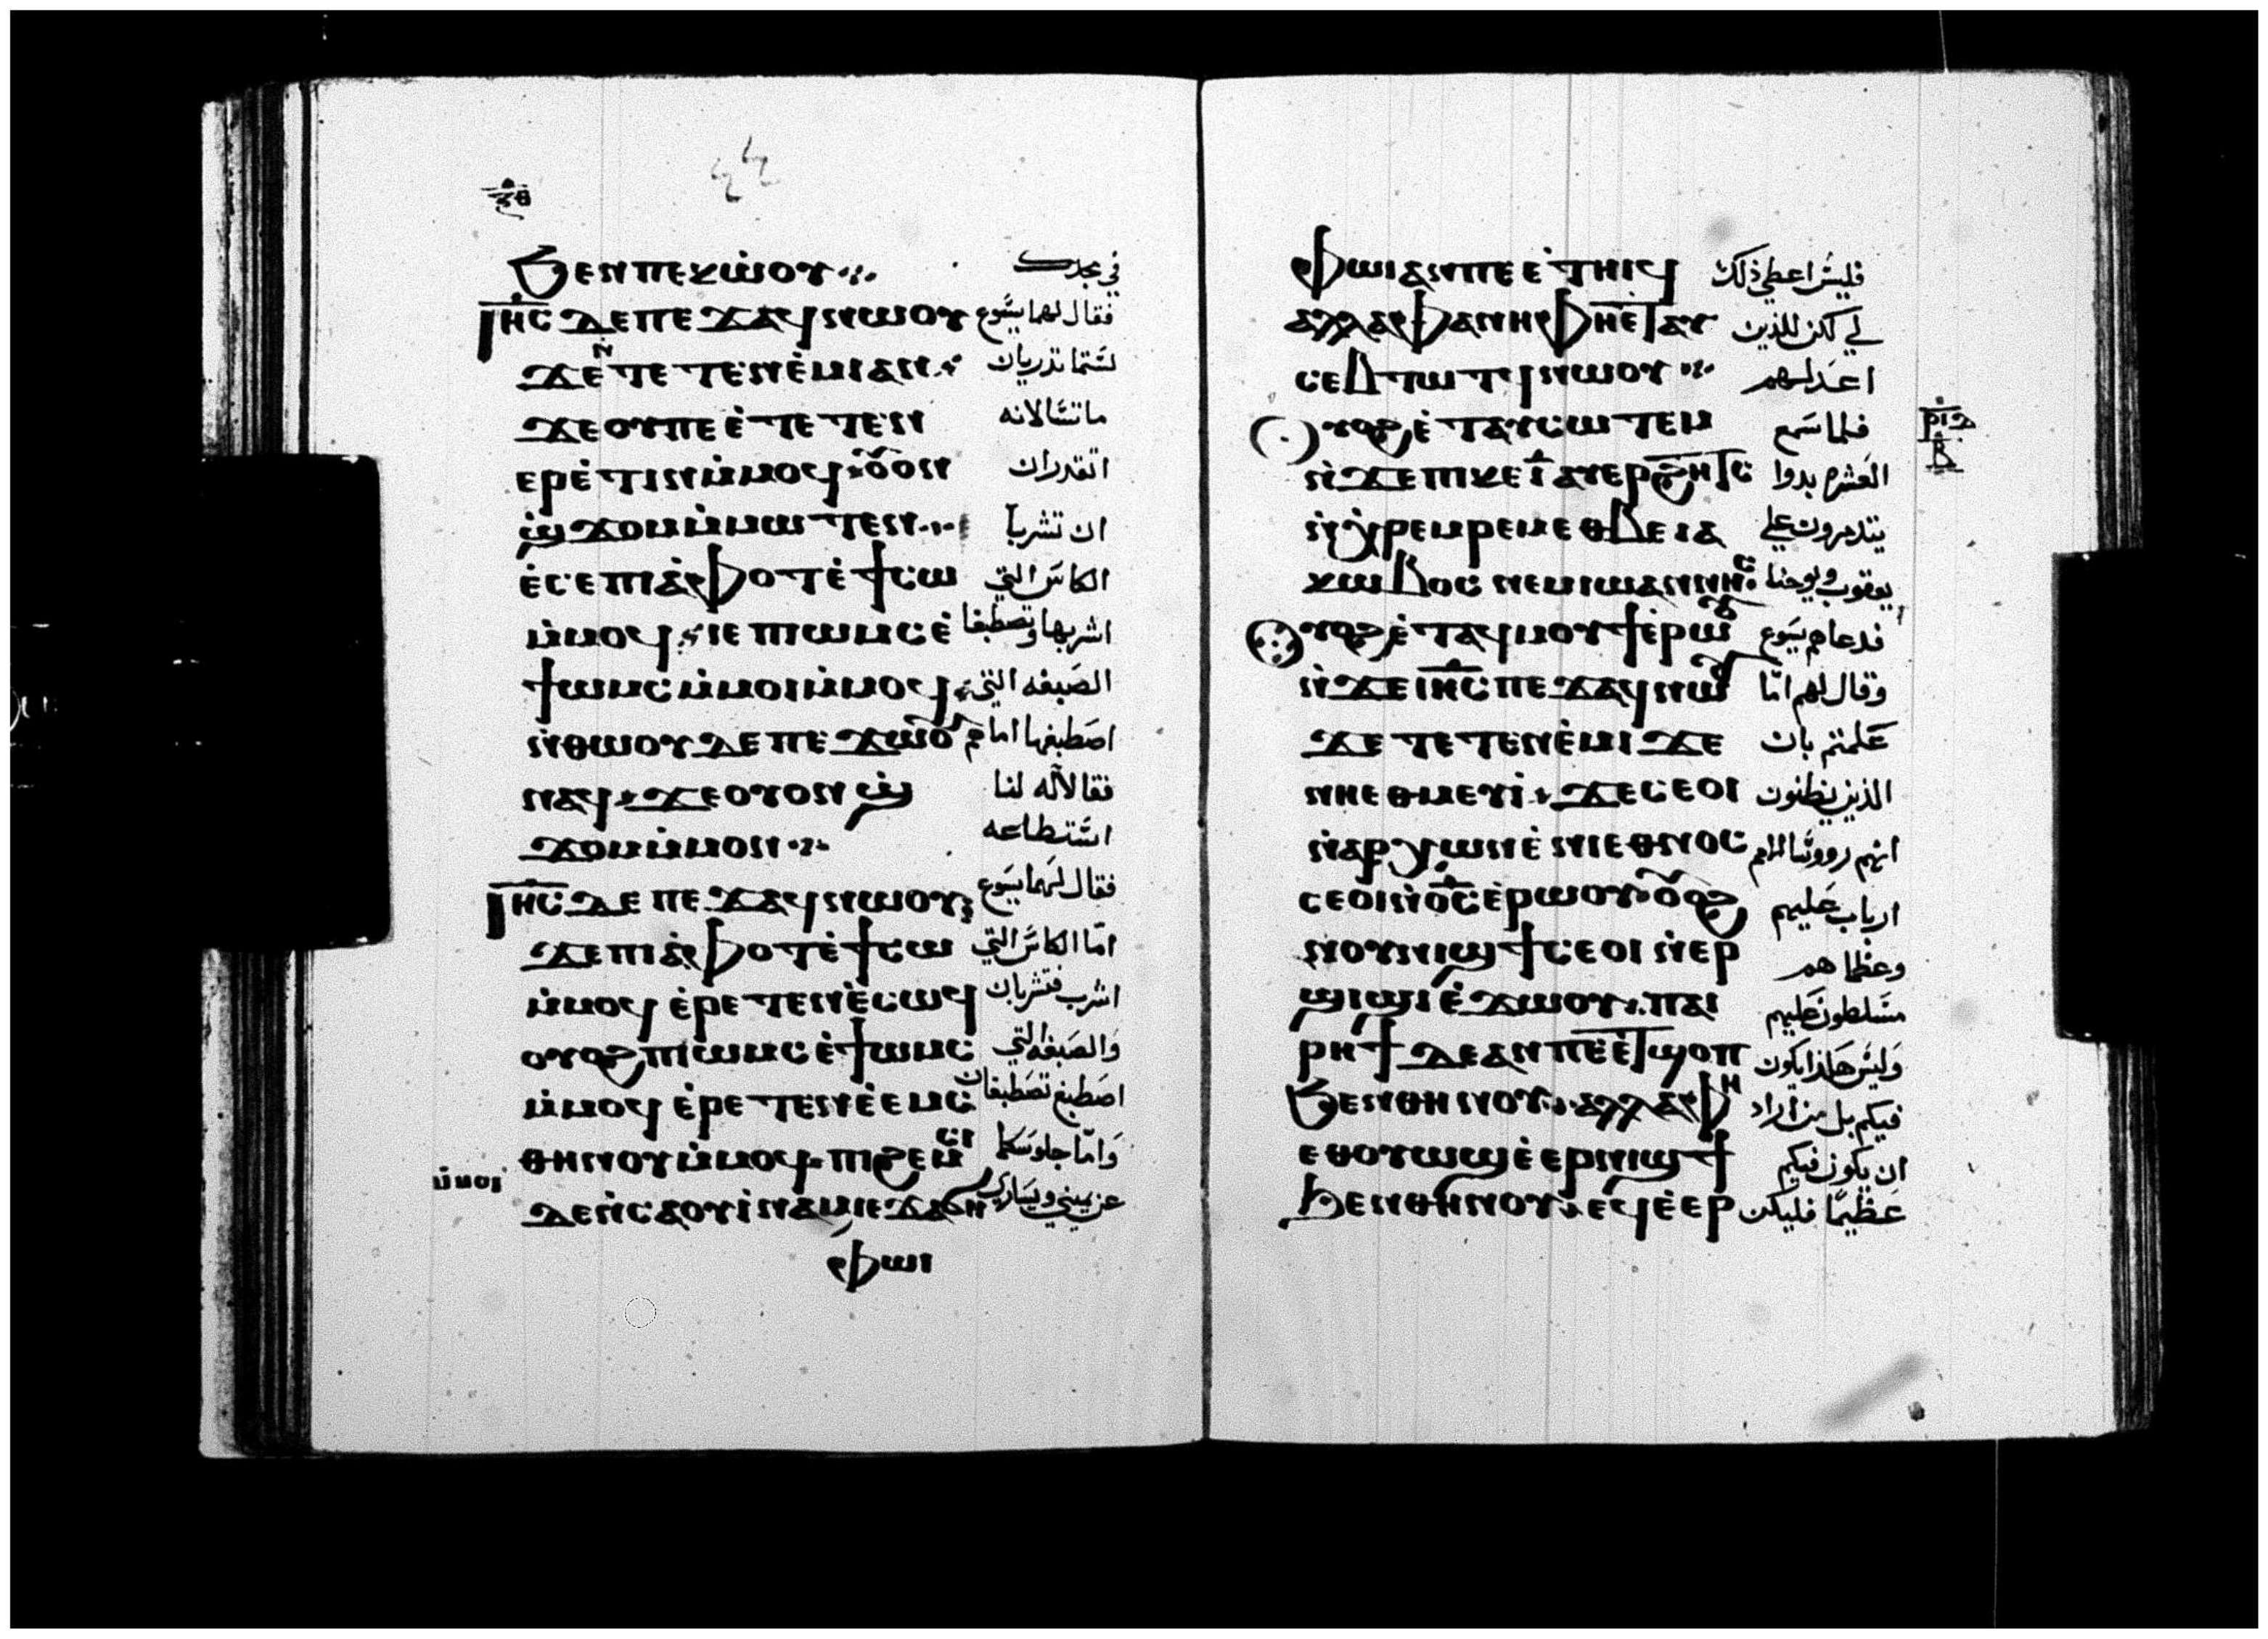 ⲝ̅ⲑ̅
ϧⲉⲛ ⲡⲉⲕⲱ̇ⲟⲩ في مجدك
ⲓⲏ̅ⲥ̅ ⲇⲉ ⲡⲉϫⲁϥ ⲛⲱⲟⲩ فقال لهما يسوع
ϫⲉ ⲛ̇ⲧⲉⲧⲉⲛⲉ̇ⲙⲓ ⲁⲛ لستما تدريان
ϫⲉ ⲟⲩ ⲡⲉ ⲉ̇ⲧⲉⲧⲉⲛ ما تسالانه
ⲉⲣⲉ̇ⲧⲓⲛ ⲙ̇ⲙⲟϥ ⲟⲩⲟⲛ اتقدران
ϣ̇ϫⲟⲙ ⲙ̇ⲙⲱⲧⲉⲛ ان تشربا
ⲉ̇ⲥⲉ ⲡⲓⲁ̇ⲫⲟⲧ ⲉ̇ϯⲥⲱ الكاس التي
ⲙ̇ⲙⲟϥ ⲓⲉ ⲡⲓⲱⲙⲥ ⲉ̇ اشربها وتصطبغا
ϯⲱⲙⲥ ⲙ̇ⲙⲟⲓ ⲙ̇ⲙⲟϥ الصبغه التي
ⲛ̇ⲑⲱⲟⲩ ⲇⲉ ⲡⲉϫⲱⲟⲩ اصطبغها اما هم
ⲛⲁϥ ϫⲉ ⲟⲩⲟⲛ ϣ̇ فقالا له لنا
ϫⲟⲙ ⲙ̇ⲙⲟⲛ استطاعه
ⲓⲏ̅ⲥ̅ ⲇⲉ ⲡⲉϫⲁϥ ⲛⲱⲟⲩ فقال لهما يسوع
ϫⲉ ⲡⲓⲁ̇ⲫⲟⲧ ⲉ̇ϯⲥⲱ اما الكاس التي
ⲙ̇ⲙⲟϥ ⲉ̇ⲣⲉⲧⲉⲛⲉ̇ⲥⲱϥ اشرب فتشربان
ⲟⲩⲟϩ ⲡⲓⲱⲙⲥ ⲉ̇ϯⲱⲙⲥ والصبغه التي
ⲙ̇ⲙⲟϥ ⲉ̇ⲣⲉⲧⲉⲛⲉ̇ⲉⲙⲥ اصطبغ تصطبغان
ⲑⲏⲛⲟⲩ ⲙ̇ⲙⲟϥ ⲡϩⲉⲙⲥⲓ واما جلوسكما
ⲙ̇ⲙⲟⲓ
ⲇⲉ ⲛ̇ⲥⲁⲟⲩⲓ̇ⲛⲁⲙ ⲓⲉ ϫⲁϭⲏ عن يميني ويساري
ⲫⲱⲓ
ⲫⲱⲓ ⲁⲛ ⲡⲉ ⲉ̇ⲧⲏⲓϥ فليس اعطي ذلك
ⲁⲗⲗⲁ ⲫⲁ ⲛⲏ ⲫⲏ ⲉⲧⲁⲩ لي لكن للذين
ⲥⲉⲃⲧⲱⲧϥ ⲛⲱⲟⲩ اعد لهم
ⲟⲩⲟϩ ⲉ̇ⲧⲁⲩⲥⲱⲧⲉⲙ فلما سمع
ⲣⲓⲍ
ⲃ
ⲛ̇ϫⲉ ⲡⲕⲉⲓ̅ ⲁⲩⲉⲣϩⲏⲧⲥ العشره بدوا
ⲛ̇ⲭⲣⲉⲙⲣⲉⲙ ⲉⲑⲃⲉ ⲓⲁ يتدمرون علي
ⲕⲱⲃⲟⲥ ⲛⲉⲙ ⲓⲱⲁⲛⲛⲏⲥ يعقوب ويوحنا
ⲟⲩⲟϩ ⲉ̇ⲧⲁϥⲙⲟⲩϯ ⲉ̇ⲣⲱⲟⲩ فدعاهم يسوع
ⲛ̇ϫⲉ ⲓⲏ̅ⲥ̅ ⲡⲉϫⲁϥ ⲛⲱⲟⲩ وقال لهم اما
ϫⲉ ⲧⲉⲧⲉⲛⲉ̇ⲙⲓ ϫⲉ علمتم بان
ⲛⲏ ⲉⲑⲙⲉⲩⲓ̇ ϫⲉ ⲥⲉⲟⲓ الذين يظنون
ⲛ̇ⲁⲣⲭⲱⲛ ⲉ̇ⲛⲓⲉⲑⲛⲟⲥ انهم رووسا الامم
ⲥⲉⲟⲓ ⲛ̇ⲟ̅ⲥ̅ ⲉ̇ⲣⲱⲟⲩ ⲟⲩⲟϩ ارباب عليهم
ⲛⲟⲩⲛⲓϣϯ ⲥⲉⲟⲓ ⲛ̇ⲉⲣ وعظماهم
ϣⲓϣⲓ ⲉ̇ϫⲱⲟⲩ ⲡⲁⲓ مسلطون عليهم
ⲣⲏϯ ⲇⲉ ⲁⲛ ⲡⲉ ⲉ̇ⲧϣⲟⲡ وليس هاذا يكون
ϧⲉⲛ ⲑⲏⲛⲟⲩ ⲁⲗⲗⲁ ⲫⲏ فيكم بل من اراد
ⲉⲑⲟⲩⲱϣ ⲉ̇ⲉⲣⲛⲓϣϯ ان يكون فيكم
ϧⲉⲛ ⲑⲏⲛⲟⲩ ⲉϥⲉ̇ⲉⲣ عظيما فليكن